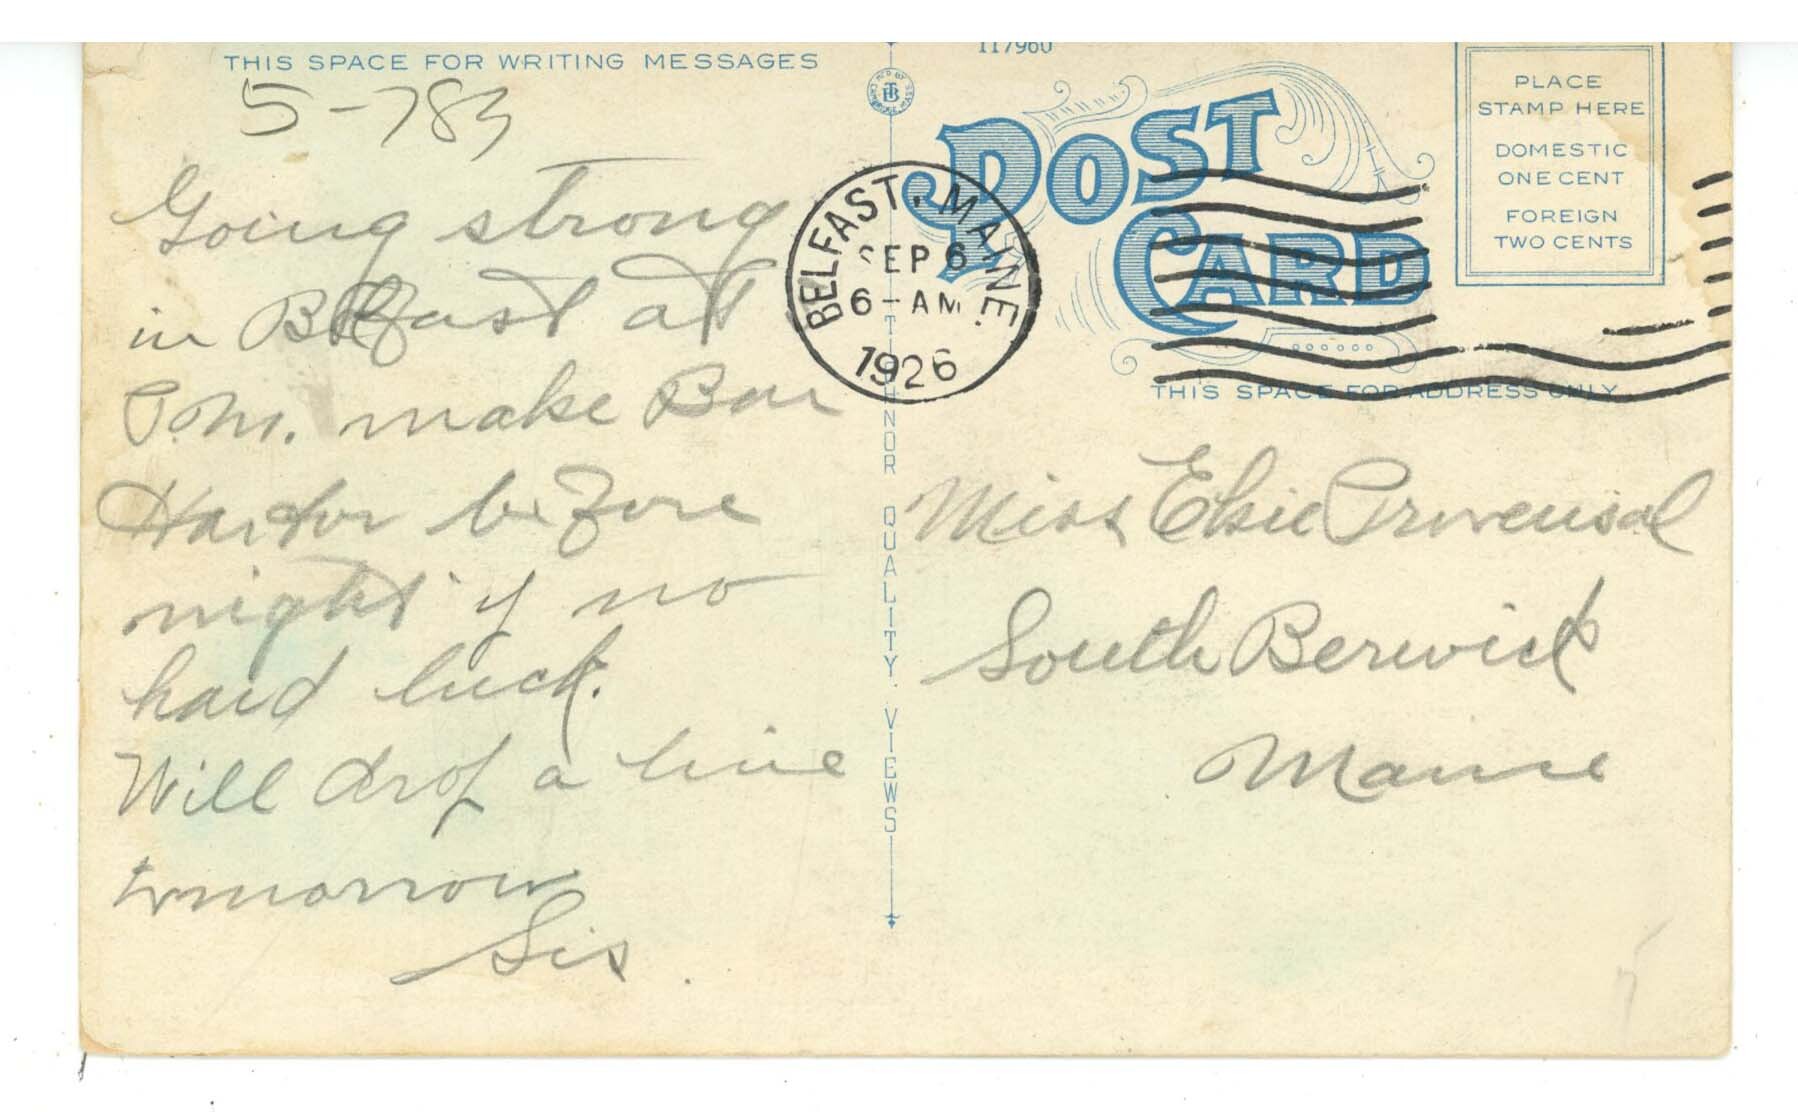 THIS SPACE FOR WRITING MESSAGES
5-783
Going strong
in Belfast at
P.M. make Bar
Harbor before
night if no
hard luck.
Will drop a line
tomorrow
Sis.
117960
MF'D BY
TB
CAMBRIDGE, MASS.
TICHNOR QUALITY VIEWS
POST CARD
BELFAST, MAINE.
SEP 6
6-AM
1926
PLACE
STAMP HERE
DOMESTIC
ONE CENT
FOREIGN
TWO CENTS
THIS SPACE FOR ADDRESS ONLY
Miss Elsie Provensal
South Berwick
Maine